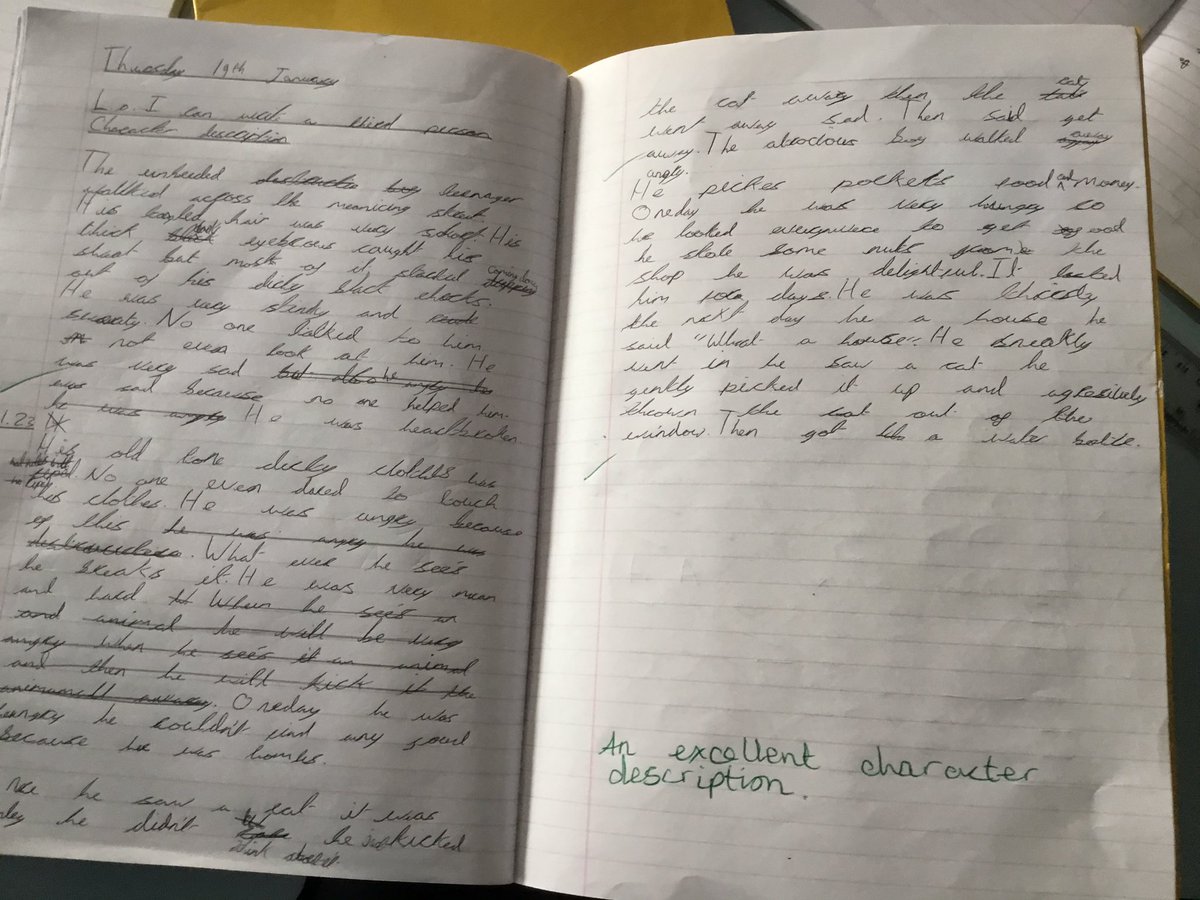 Thursday 19th January
L.o. I can writ a third person
Character description
The unheeded teenager
walked across the menicing street.
His layled hair was very short. His
thick black eyebrows caught his
shaat but most of it slacked coming down
out of his dirty black chocks.
He was very slindy and
sweaty. No one talked to him
not even look at him. He
was very sad but also he angry he
was sad because no one helped him.
he was angry He was heartbroken
1.23
His old tone dicky clothes was
riped. No one even dared to touch
his clothes. He was angry because
of this he was angry he was
What ever he see's
he breaks it. He was very mean
and hard When he see's an
and animal he will be very
angry when he see's it an animal
and then he will kick it the
away. Oneday he was
hungry he couldn't find any food
because he was homles.
he saw a cat it was
he didn't he just kicked
the cat away then the cat
went away sad. Then said get
away. The atrocious boy walked away
angry.
He pickes pockets food and money.
Oneday he was very hungry so
he looked everywere to get food
he stole some nuts from the
shop he was delightful. It lasted
him days. He was thirsty
the next day he a house he
said "What a house". He sneakly
went in he saw a cat he
gently picked it up and agresively
thrown the cat out of the
window. Then got a water bottle.
An excellent character
description.